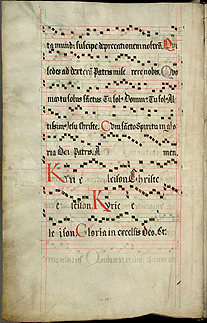 ta mundi suscipe deprecationem nostrã. Qui
sedes ad dexterã Patris mise rere nobis. Quo
niam tu solus sctus Tu sol9 Dominus Tu sol9 Al
tissim9 Jesu Christe. Cum sancto Spiritu in glo
ria Dei Patris. A men.
Kyri e leison Christe
e leison Kyrie e
le ison Gloria in excelsis Deo. Et